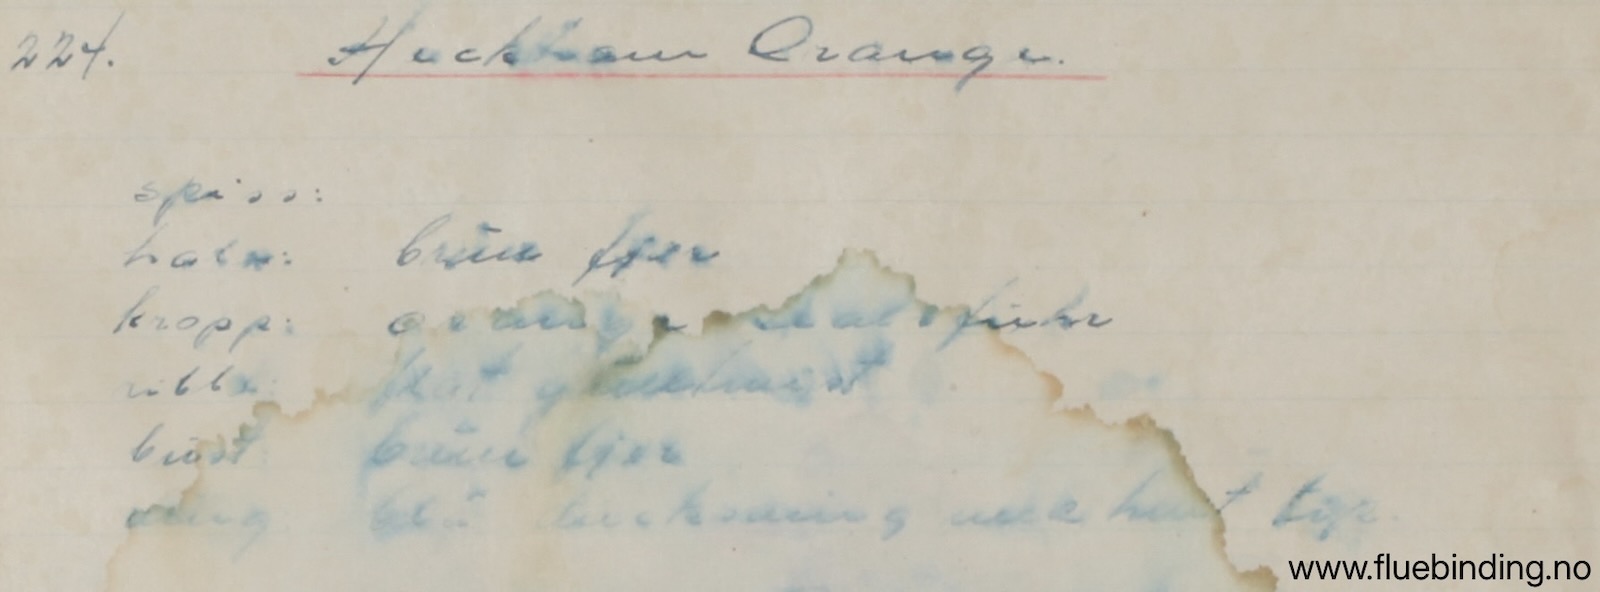 224. Heckham Orange.
spiss:
hale: brun fjer
kropp: orange
ribbe: flat
bryst brun fjer
ving blå med hvit tipp.
www.fluebinding.no